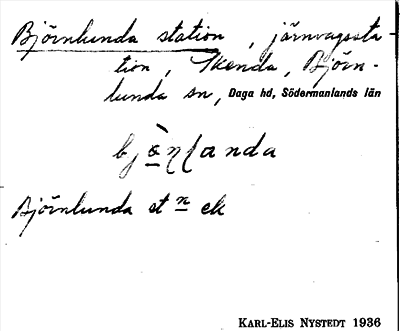 Björnlunda station, järnvägssta-
tion, Skenda, Björn-
lunda sn, Daga hd, Södermanlands län
Björnlunda st n ek
KARL-ELIS NYSTEDT 1936